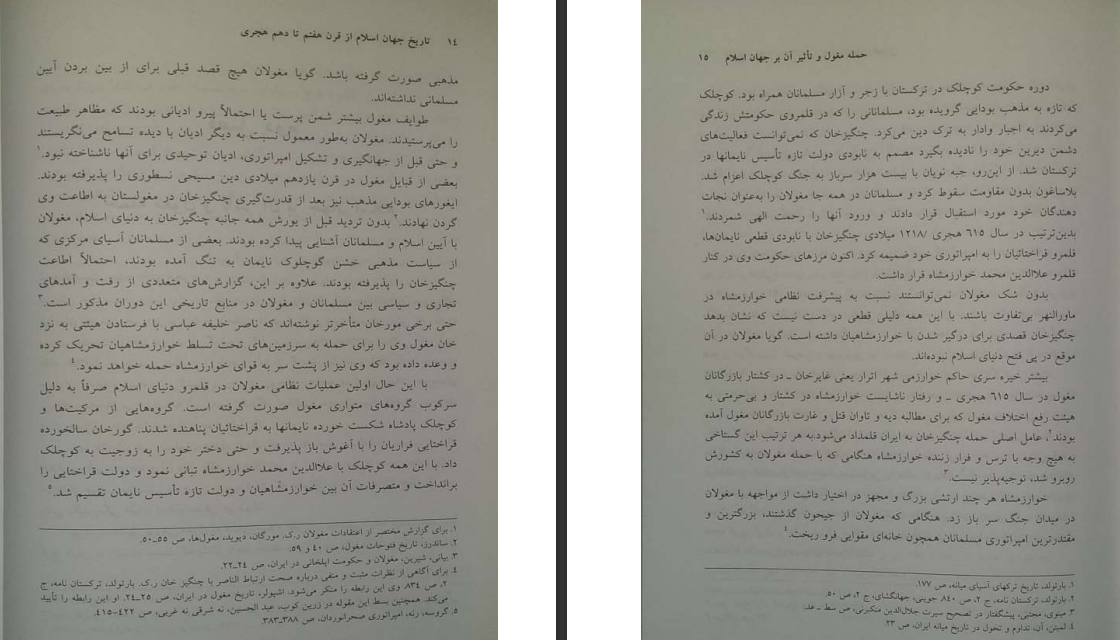 ١٤ تاریخ جهان اسلام از قرن هفتم تا دهم هجری
مذهبی صورت گرفته باشد. گویا مغولان هیچ قصد قبلی برای از بین بردن آیین
مسلمانی نداشته‌اند.
طوایف مغول بیشتر شمن پرست یا احتمالاً پیرو ادیانی بودند که مظاهر طبیعت
را می‌پرستیدند. مغولان به‌طور معمول نسبت به دیگر ادیان با دیده تسامح می‌نگریستند
و حتی قبل از جهانگیری و تشکیل امپراتوری، ادیان توحیدی برای آنها ناشناخته نبود.١
بعضی از قبایل مغول در قرن یازدهم میلادی دین مسیحی نسطوری را پذیرفته بودند.
ایغورهای بودایی مذهب نیز بعد از قدرت‌گیری چنگیزخان در مغولستان به اطاعت وی
گردن نهادند.٢ بدون تردید قبل از یورش همه جانبه چنگیزخان به دنیای اسلام، مغولان
با آیین اسلام و مسلمانان آشنایی پیدا کرده بودند. بعضی از مسلمانان آسیای مرکزی که
از سیاست مذهبی خشن گوچلوک نایمان به تنگ آمده بودند، احتمالاً اطاعت
چنگیزخان را پذیرفته بودند. علاوه بر این، گزارش‌های متعددی از رفت و آمدهای
تجاری و سیاسی بین مسلمانان و مغولان در منابع تاریخی این دوران مذکور است.٣
حتی برخی مورخان متأخرتر نوشته‌اند که ناصر خلیفه عباسی با فرستادن هیئتی به نزد
خان مغول وی را برای حمله به سرزمین‌های تحت تسلط خوارزمشاهیان تحریک کرده
و وعده داده بود که وی نیز از پشت سر به قوای خوارزمشاه حمله خواهد نمود.٤
با این حال اولین عملیات نظامی مغولان در قلمرو دنیای اسلام صرفاً به دلیل
سرکوب گروه‌های متواری مغول صورت گرفته است. گروه‌هایی از مرکیت‌ها و
کوچلک پادشاه شکست خورده نایمانها به قراختائیان پناهنده شدند. گورخان سالخورده
قراختایی فراریان را با آغوش باز پذیرفت و حتی دختر خود را به زوجیت به کوچلک
داد. با این همه کوچلک با علاالدین محمد خوارزمشاه تبانی نمود و دولت قراختایی را
برانداخت و متصرفات آن بین خوارزمشاهیان و دولت تازه تأسیس نایمان تقسیم شد.٥
١. برای گزارش مختصر از اعتقادات مغولان ر.ک. مورگان، دیوید، مغول‌ها، ص ٥٥ـ٥٠.
٢. ساندرز، تاریخ فتوحات مغول، ص ٤٠ و ٥٩.
٣. بیانی، شیرین، مغولان و حکومت ایلخانی در ایران، ص ٢٤ـ٢٢.
٤. برای آگاهی از نظرات مثبت و منفی درباره صحت ارتباط الناصر با چنگیز خان ر.ک. بارتولد، ترکستان نامه، ج
٢، ص ٨٣٤. وی این رابطه را منکر می‌شود. اشپولر، تاریخ مغول در ایران، ص ٢٥ـ٢٤. او این رابطه را تأیید
می‌کند. همچنین بسط این مقوله در زرین کوب، عبد الحسین، نه شرقی نه غربی، ص ٤٢٢ـ٤١٥.
٥. گروسه، رنه، امپراتوری صحرانوردان، ص ٣٨٨ـ٣٨٣.
حمله مغول و تأثیر آن بر جهان اسلام ١٥
دوره حکومت کوچلک در ترکستان با زجر و آزار مسلمانان همراه بود. کوچلک
که تازه به مذهب بودایی گرویده بود، مسلمانانی را که در قلمروی حکومتش زندگی
می‌کردند به اجبار وادار به ترک دین می‌کرد. چنگیزخان که نمی‌توانست فعالیت‌های
دشمن دیرین خود را نادیده بگیرد مصمم به نابودی دولت تازه تأسیس نایمانها در
ترکستان شد. از این‌رو، جبه نویان با بیست هزار سرباز به جنگ کوچلک اعزام شد.
بلاساغون بدون مقاومت سقوط کرد و مسلمانان در همه جا مغولان را به‌عنوان نجات
دهندگان خود مورد استقبال قرار دادند و ورود آنها را رحمت الهی شمردند.١
بدین‌ترتیب در سال ٦١٥ هجری /١٢١٨ میلادی چنگیزخان با نابودی قطعی نایمان‌ها،
قلمرو قراختائیان را به امپراتوری خود ضمیمه کرد. اکنون مرزهای حکومت وی در کنار
قلمرو علاالدین محمد خوارزمشاه قرار داشت.
بدون شک مغولان نمی‌توانستند نسبت به پیشرفت نظامی خوارزمشاه در
ماورالنهر بی‌تفاوت باشند. با این همه دلیلی قطعی در دست نیست که نشان بدهد
چنگیزخان قصدی برای درگیر شدن با خوارزمشاهیان داشته است. گویا مغولان در آن
موقع در پی فتح دنیای اسلام نبوده‌اند.
بیشتر خیره سری حاکم خوارزمی شهر اترار یعنی غایرخان ـ در کشتار بازرگانان
مغول در سال ٦١٥ هجری ـ و رفتار ناشایست خوارزمشاه در کشتار و بی‌حرمتی به
هیئت رفع اختلاف مغول که برای مطالبه دیه و تاوان قتل و غارت بازرگانان مغول آمده
بودند٢، عامل اصلی حمله چنگیزخان به ایران قلمداد می‌شود.به هر ترتیب این گستاخی
به هیچ وجه با ترس و فرار زننده خوارزمشاه هنگامی که با حمله مغولان به کشورش
روبرو شد، توجیه‌پذیر نیست.٣
خوارزمشاه هر چند ارتشی بزرگ و مجهز در اختیار داشت از مواجهه با مغولان
در میدان جنگ سر باز زد. هنگامی که مغولان از جیحون گذشتند، بزرگترین و
مقتدرترین امپراتوری مسلمانان همچون خانه‌ای مقوایی فرو ریخت.٤
١. بارتولد، تاریخ ترکهای آسیای میانه، ص ١٧٧.
٢. بارتولد، ترکستان نامه، ج ٢، ص ٨٤٠. جوینی، جهانگشای، ج ٢، ص ٥٠.
٣. مینوی، مجتبی، پیشگفتار در تصحیح سیرت جلال‌الدین منکبرنی، ص سط ـ عد.
٤. لمبتن، آن، تداوم و تحول در تاریخ میانه ایران، ص ٢٣.